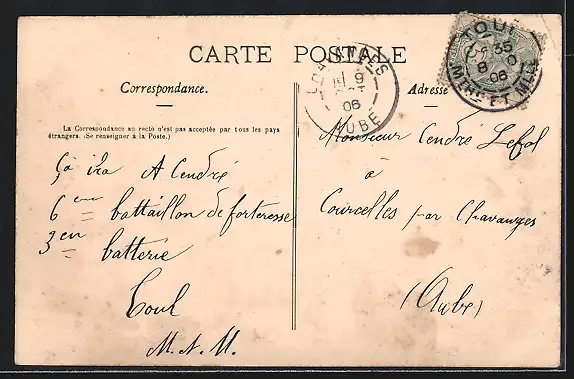 CARTE POSTALE
Correspondance.
La Correspondance au recto n'est pas acceptée par tous les pays
étrangers. (Se renseigner à la Poste.)
Çà ira A Cendré
6eme battaillon de forteresse
3en batterie
Toul
M. N. M.
Adresse
Monsieur Cendré Lefol
à
Courcelles par Chavanges
(Aube)
CHAVANGES
9
06
AUBE
TOUL
35
8
06
MTHE ET MLLE